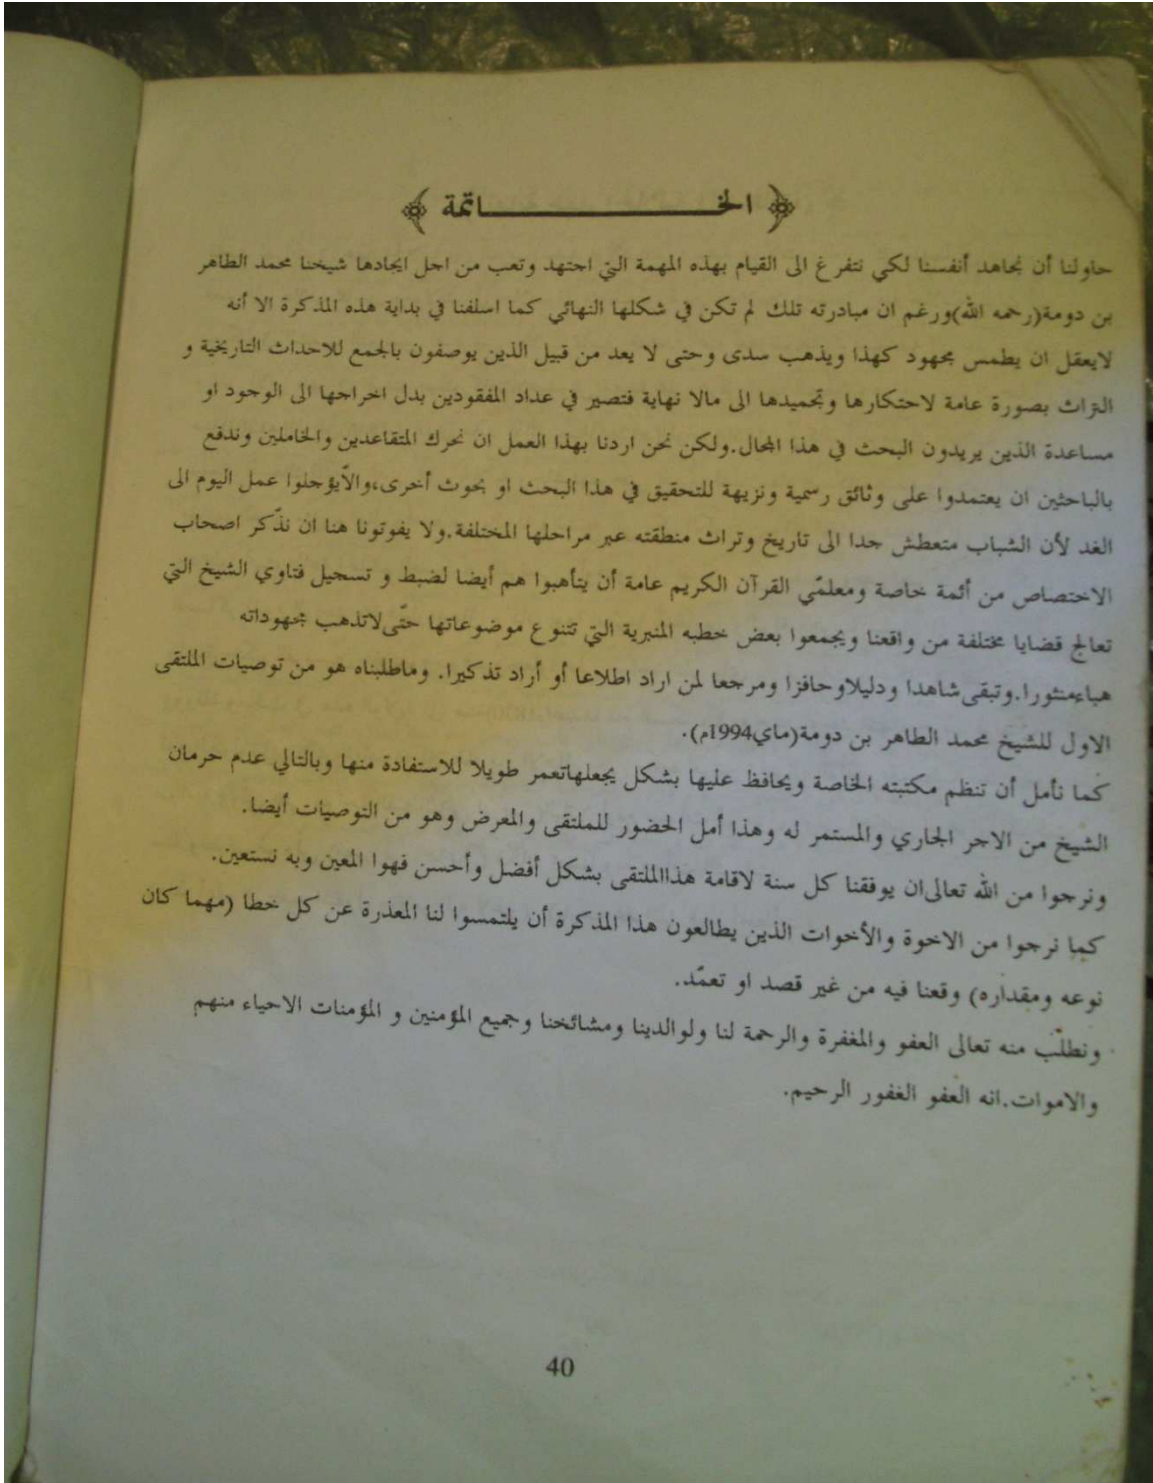 الخــــــــــــاتمة
حاولنا أن نجاهد أنفسنا لكي نتفرغ الى القيام بهذه المهمة التي اجتهد وتعب من اجل ايجادها شيخنا محمد الطاهر
بن دومة(رحمه الله)ورغم ان مبادرته تلك لم تكن في شكلها النهائي كما اسلفنا في بداية هذه المذكرة الا أنه
لايعقل ان يطمس مجهود كهذا ويذهب سدى وحتى لا يعد من قبيل الذين يوصفون بالجمع للاحداث التاريخية و
التراث بصورة عامة لاحتكارها وتجميدها الى مالا نهاية فتصير في عداد المفقودين بدل اخراجها الى الوجود او
مساعدة الذين يريدون البحث في هذا المجال.ولكن نحن اردنا بهذا العمل ان نحرك المتقاعدين والخاملين وندفع
بالباحثين ان يعتمدوا على وثائق رسمية ونزيهة للتحقيق في هذا البحث او بحوث أخرى،والاّيؤجلوا عمل اليوم الى
الغد لأن الشباب متعطش جدا الى تاريخ وتراث منطقته عبر مراحلها المختلفة.ولا يفوتونا هنا ان نذّكر اصحاب
الاختصاص من أئمة خاصة ومعلمّي القرآن الكريم عامة أن يتأهبوا هم أيضا لضبط و تسجيل فتاوي الشيخ التي
تعالج قضايا مختلفة من واقعنا ويجمعوا بعض خطبه المنبرية التي تتنوع موضوعاتها حتّى لاتذهب مجهوداته
هباءمنثورا.وتبقى شاهدا ودليلاوحافزا ومرجعا لمن اراد اطلاعا أو أراد تذكيرا. وماطلبناه هو من توصيات الملتقى
الاول للشيخ محمد الطاهر بن دومة(ماي1994م).
كما نأمل أن تنظم مكتبته الخاصة ويحافظ عليها بشكل يجعلهاتعمر طويلا للاستفادة منها وبالتالي عدم حرمان
الشيخ من الاجر الجاري والمستمر له وهذا أمل الحضور للملتقى والمعرض وهو من التوصيات أيضا.
ونرجوا من الله تعالى ان يوفقنا كل سنة لاقامة هذاالملتقى بشكل أفضل وأحسن فهوا المعين وبه نستعين.
كما نرجوا من الاخوة والأخوات الذين يطالعون هذا المذكرة أن يلتمسوا لنا المعذرة عن كل خطا (مهما كان
نوعه ومقداره) وقعنا فيه من غير قصد او تعمّد.
ونطلّب منه تعالى العفو والمغفرة والرحمة لنا ولوالدينا ومشائخنا وجميع المؤمنين و المؤمنات الاحياء منهم
والاموات.انه العفو الغفور الرحيم.
40